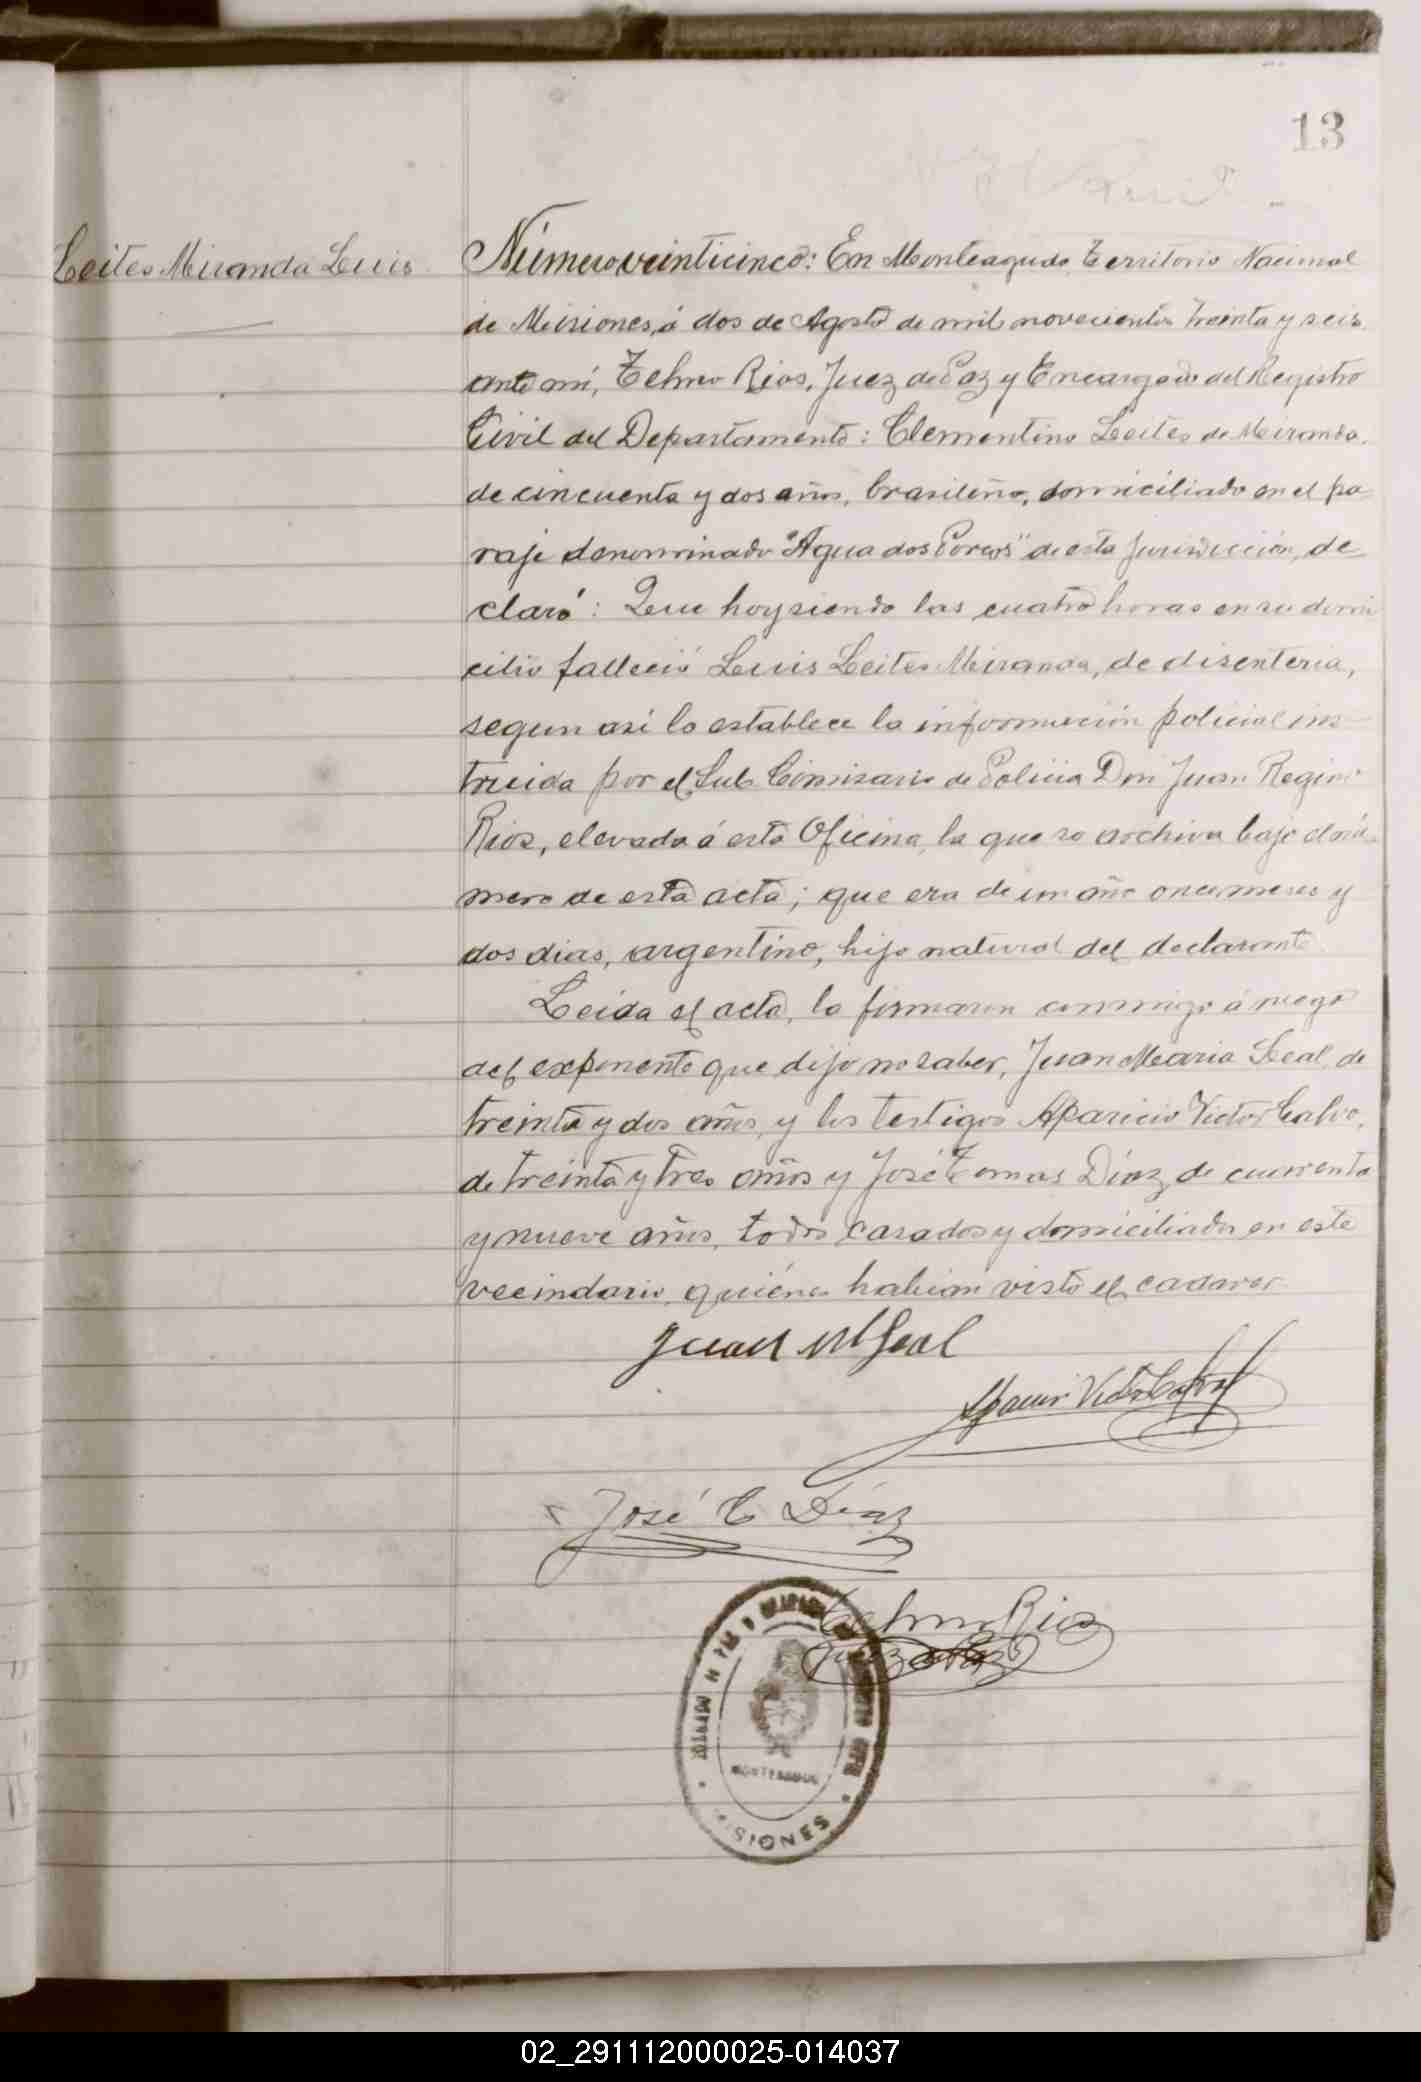 13
Leites Miranda Luis
Número veinticinco: En Monteagudo, Territorio Nacional
de Misiones, á dos de Agosto de mil novecientos treinta y seis,
ante mí, Telmo Rios, Juez de Paz y Encargado del Registro
Civil del Departamento: Clementino Leites de Miranda,
de cincuenta y dos años, brasileño, domiciliado en el pa-
raje denominado "Agua dos Porcos" de esta jurisdicción, de-
claró: Que hoy siendo las cuatro horas en su domi
cilio falleció Luis Leites Miranda, de disenteria,
segun así lo establece la información policial ins-
truida por el Sub Comisario de Policia Don Juan Regino
Rios, elevada á esta Oficina, la que se archiva bajo el nú-
mero de esta acta; que era de un año once meses y
dos dias, argentino, hijo natural del declarante.
Leida el acta, la firmaron conmigo á ruego
del exponente que dijo no saber, Juan Maria Leal, de
treinta y dos años, y los testigos Aparicio Victor Calvo,
de treinta y tres años y José Tomas Díaz, de cuarenta
y nueve años, todos casados y domiciliados en este
vecindario, quiénes habian visto el cadaver.
Juan M Leal
José T Díaz
Telmo Rios
Juez de Paz
MONTEAGUDO
MISIONES
02_291112000025-014037